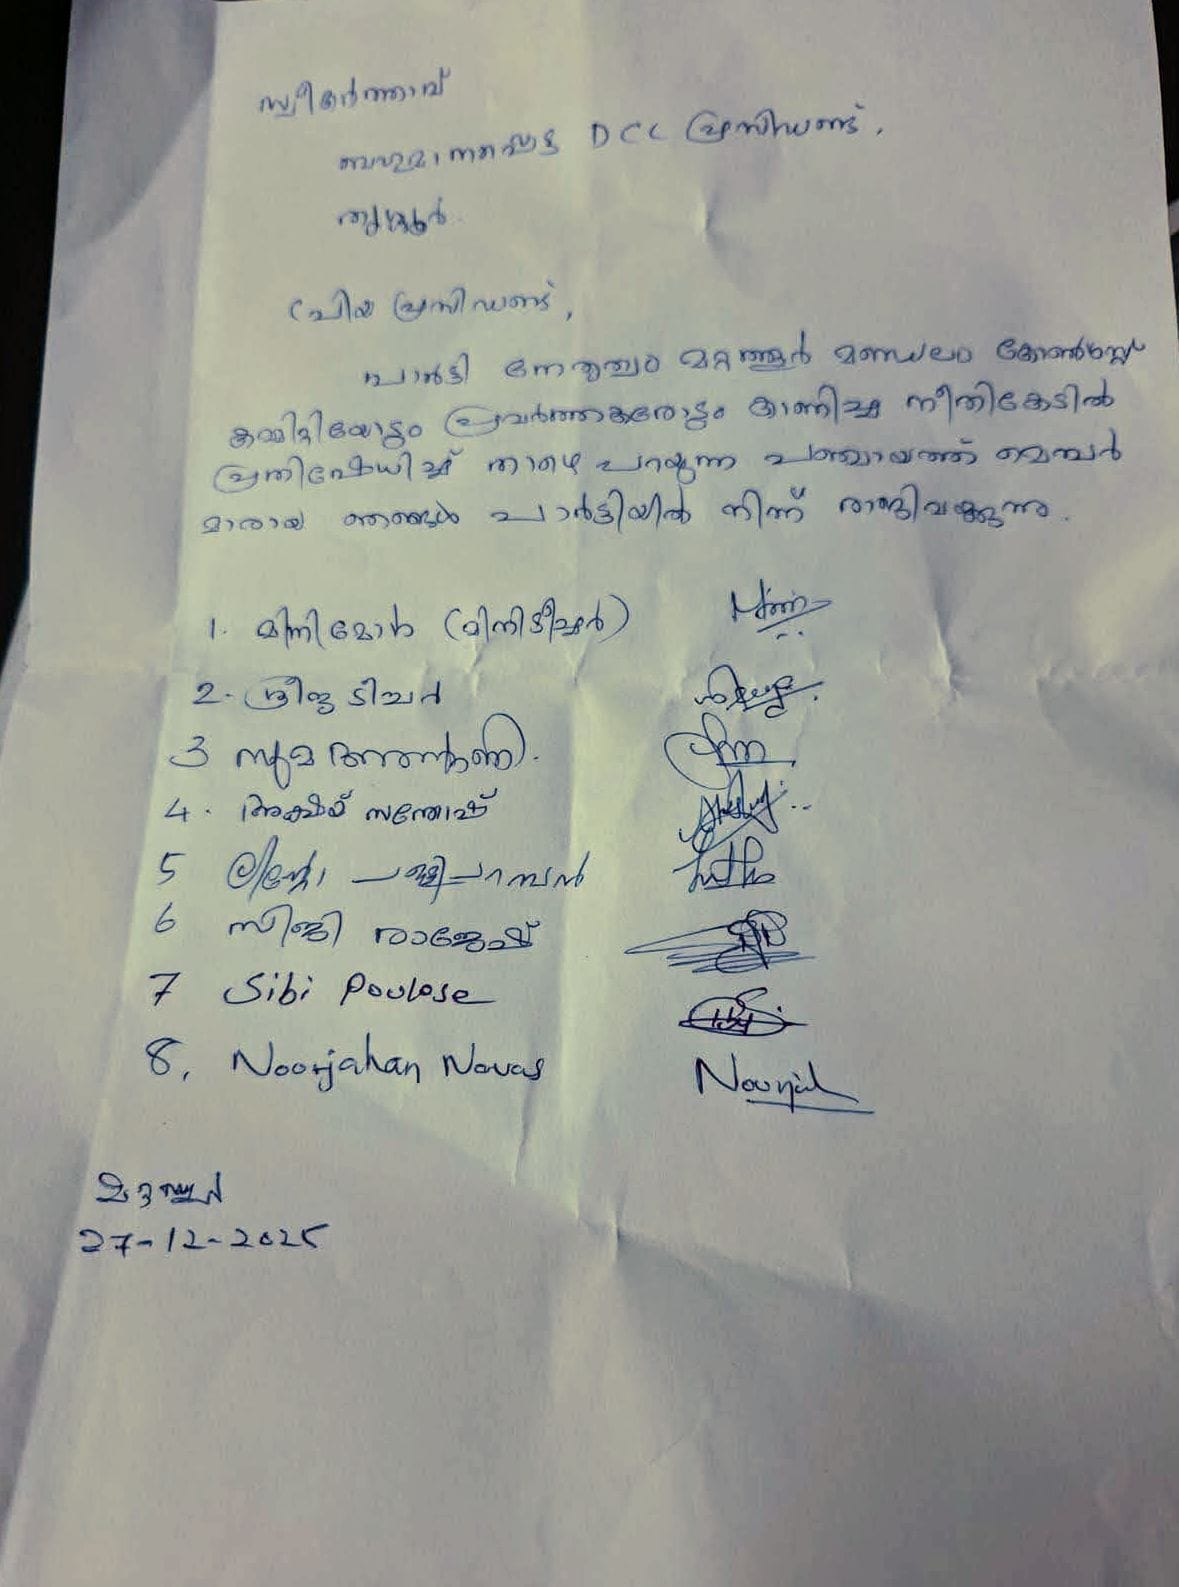 സ്വീകർത്താവ്
ബഹുമാനപ്പെട്ട DCC പ്രസിഡണ്ട്,
തൃശ്ശൂർ
പ്രിയ പ്രസിഡണ്ട്,
പാർട്ടി നേതൃത്വം മറ്റത്തൂർ മണ്ഡലം കോൺഗ്രസ്സ്
കമ്മിറ്റിയോടും പ്രവർത്തകരോടും കാണിച്ച നീതികേടിൽ
പ്രതിഷേധിച്ച് താഴെ പറയുന്ന പഞ്ചായത്ത് മെമ്പർ
മാരായ ഞങ്ങൾ പാർട്ടിയിൽ നിന്ന് രാജിവക്കുന്നു.
1. മിനിമോൾ (മിനിടീച്ചർ)
2. ശ്രീജ ടീച്ചർ
3 സുമ അന്തോണി.
4. അക്ഷയ് സന്തോഷ്
5 ലിന്റോ പള്ളിപറമ്പൻ
6 സിജി രാജേഷ്
7 Sibi Poulose
8, Noorjahan Navas Noorjah
മറ്റത്തൂർ
27-12-2025